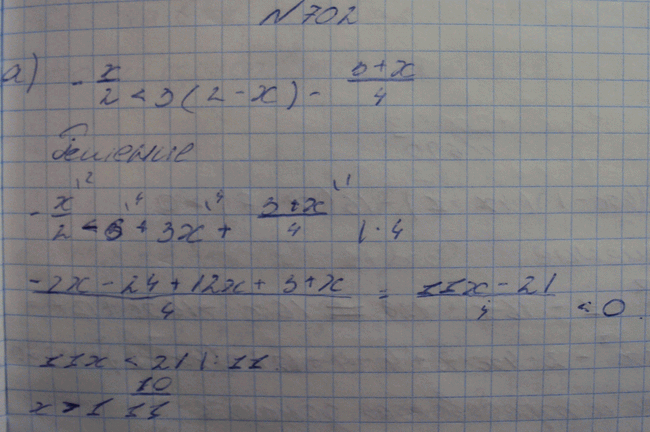 №702
а) -x/2 < 3(2-x) - 3+x/4
Решение
-x/2 \2 - 6 \4 + 3x \4 + 3+x/4 \1 | · 4
-2x - 24 + 12x + 3+x/4 = 11x - 21/4 < 0.
11x < 21 | : 11
x > 1 10/11